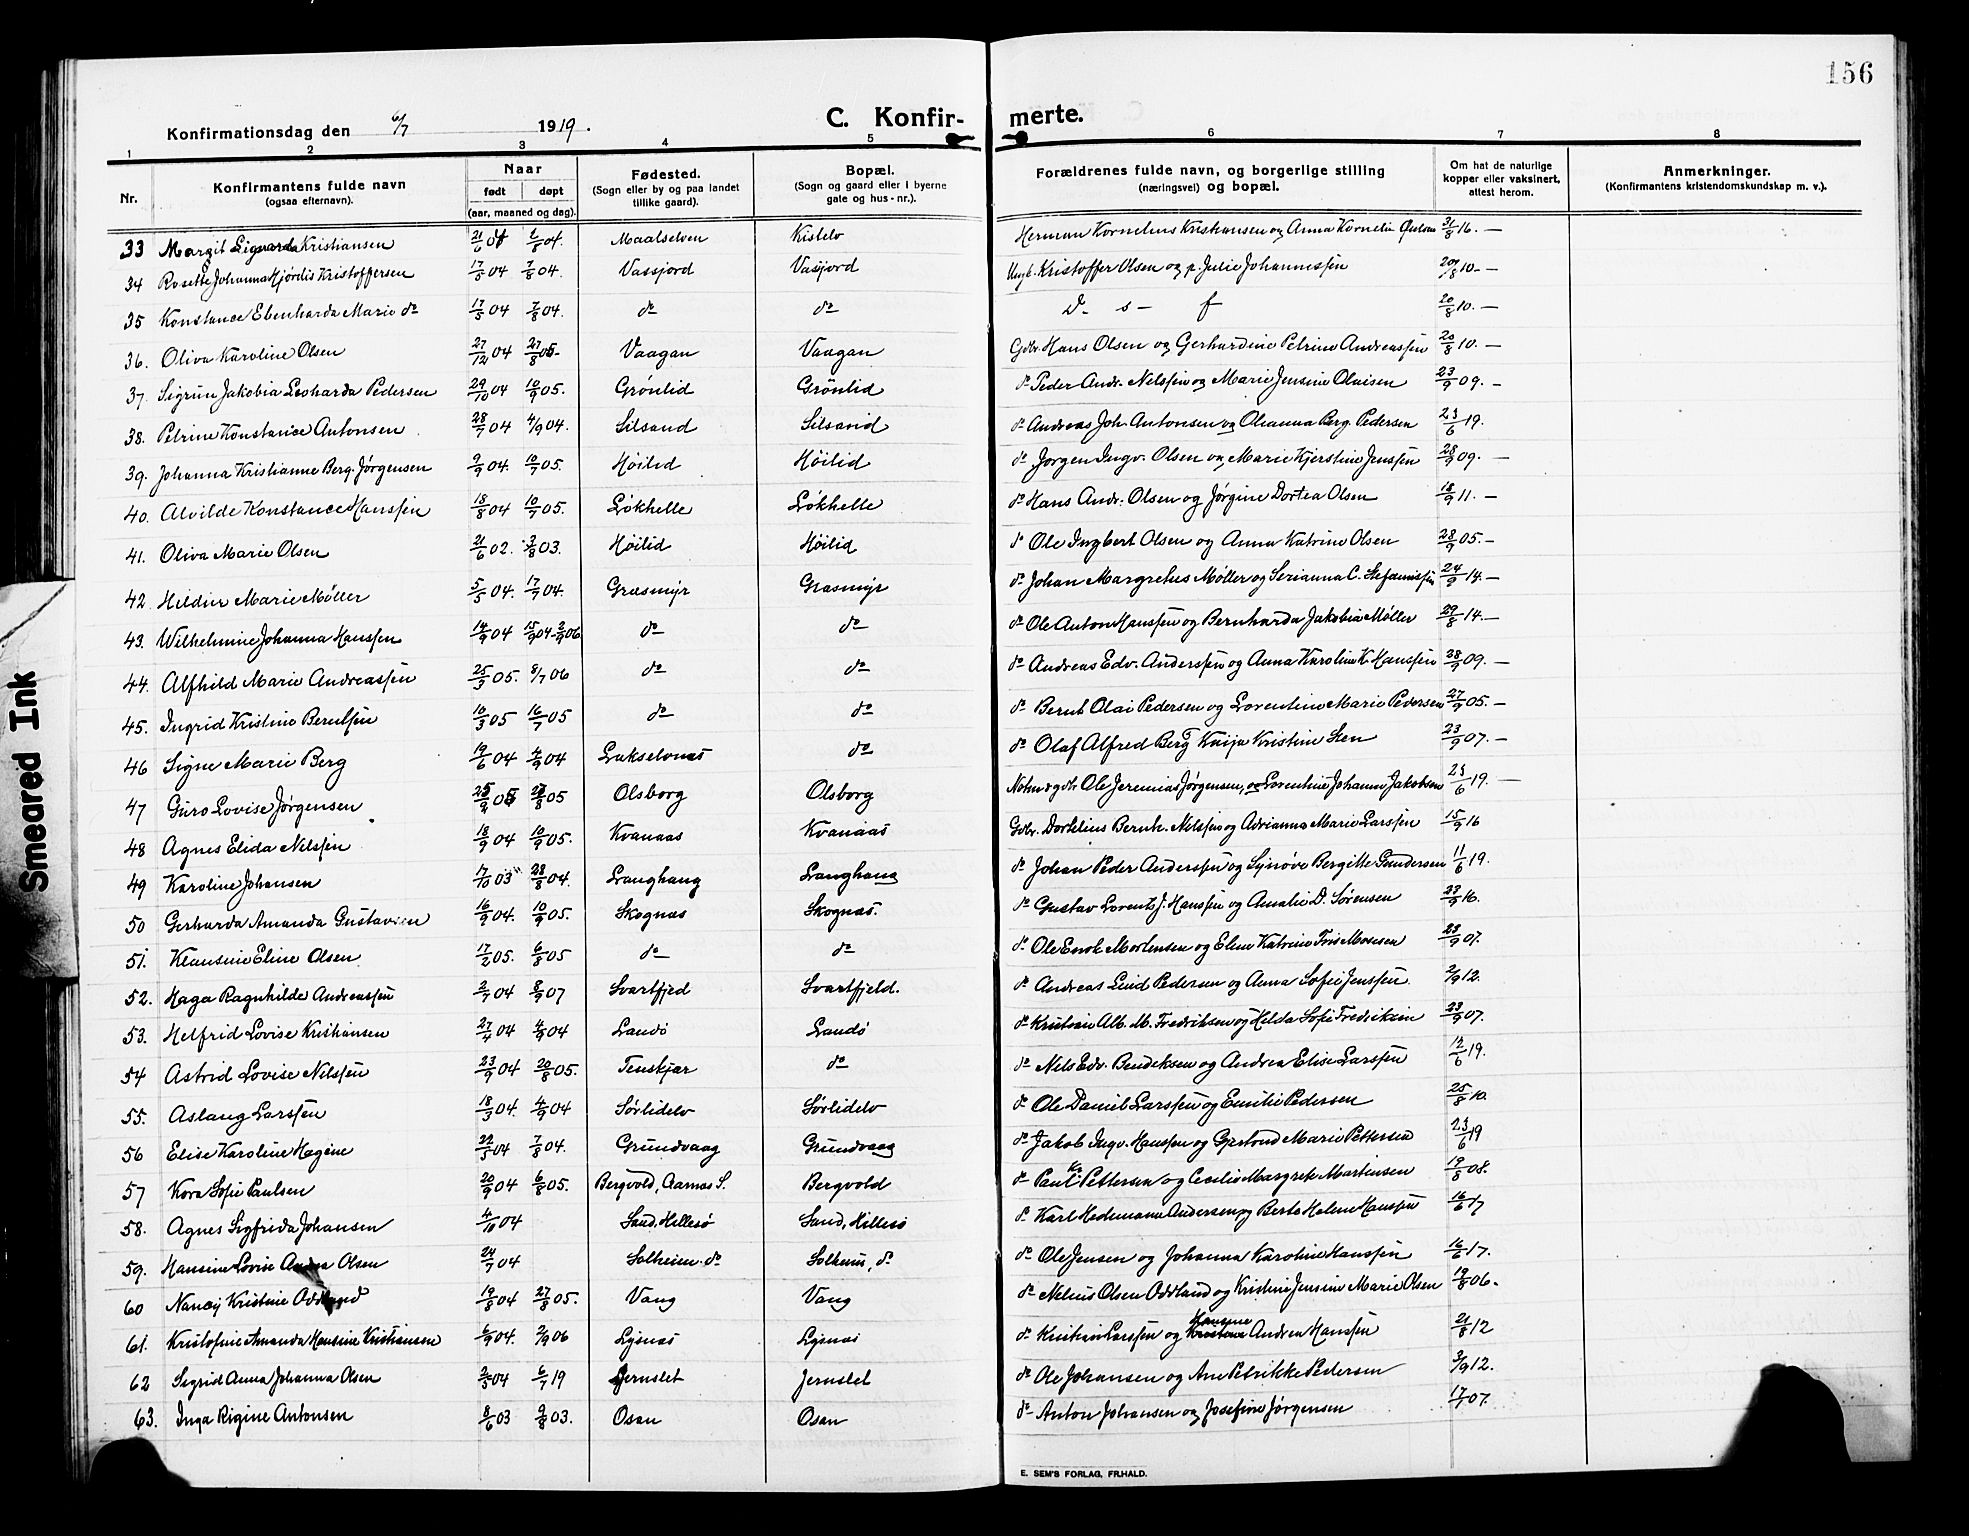 156
Smeared Ink
Konfirmationsdag den 6/7 1919.
C. Konfirmerte.
1 2 3 4 5 6 7 8
Nr. Konfirmantens fulde navn (ogsaa efternavn). Naar født døpt (aar, maaned og dag). Fødested. (Sogn eller by og paa landet tillike gaard). Bopæl. (Sogn og gaard eller i byerne gate og hus-nr.). Forældrenes fulde navn, og borgerlige stilling (næringsvei) og bopæl. Om hat de naturlige kopper eller vaksinert, attest herom. Anmerkninger. (Konfirmantens kristendomskundskap m. v.).
33 Margit Sigvarda Kristiansen 21/6 04 Maalselven Kistelv Herman Kornelius Kristiansen og Anna Kornelia 31/8 16. —
34 Rosette Johanna Hjørdis Kristoffersen 17/5 04 7/8 04. Vassjord Vasjord Kristoffer Olsen og p. Julie Johannessen 20/8 10. —
35 Konstance Ebenharda Marie do 17/5 04 7/8 04. do do D. s — f 20/8 10. —
36. Oliva Karoline Olsen 27/12 04 27/8 05. Vaagan Vaagan Gdbr. Hans Olsen og Gerhardine Petrine Andreassen 20/8 10. —
37. Sigrun Jakobia Leoharda Pedersen 29/10 04 10/9 05. Grönlid Grönlid do Peder Andr. Nilssen og Marie Jensine Olaisen 23/9 09. —
38. Petrine Konstance Antonsen 28/7 04 4/9 04. Silsand Silsand do Andreas Joh. Antonsen og Oleanna Berg. Pedersen 23/6 19.
39. Johanna Kristianne Berg. Jørgensen 9/9 04. 10/7 05. Höilid Höilid do Jørgen Ingv. Olsen og Marie Kjerstine Jenssen 28/9 09. —
40. Alvilde Konstance Hanssen 18/8 04 10/7 05. Løkhelle Løkhelle do Hans Andr. Olsen og Jørgine Dortea Olsen 18/9 11. —
41. Oliva Marie Olsen 21/6 02. 2/8 03. Höilid Höilid do Ole Ingbert Olsen og Anna Katrine Olsen 28/9 05. —
42. Heldine Marie Møller 5/5 04. 17/7 04. Grasmyr Grasmyr do Johan Margretus Møller og Serianna C. Stefanussen 24/9 14. —
43. Wilhelmine Johanna Hanssen 14/9 04 15/9 04 - 2/9 06 do do do Ole Anton Hanssen og Bernharda Jakobia Møller 29/8 14. —
44. Alfhild Marie Andreassen 25/3 05. 8/7 06 do do do Andreas Edv. Anderssen og Anna Karoline K. Hanssen 28/9 09. —
45. Ingrid Kristine Berntsen 10/3 05 16/7 05 do do do Bernt Olai Pedersen og Lorentine Marie Pedersen 27/9 05. —
46 Signe Marie Berg 19/6 04 4/9 04 Lakselvnes do do Olaf Alfred Berg Kaija Kristine Sen 23/9 07. —
47 Guro Lovise Jørgensen 25/2 05 27/8 05 Olsborg Olsborg Ole Jeremias Jørgensen, og Lorentine Johanne Jakobsen 23/6 19. —
48 Agnes Elida Nilssen 18/9 04 10/9 05. Kvanaas Kvanaas Gdbr. Dortelius Bernh. Nilssen og Adrianna Marie Larssen 15/9 16
49 Karoline Johansen 17/10 03 28/8 04. Langhang Langhang do Johan Peder Anderssen og Synøve Bergitte Gundersen 11/6 19.
50 Gerharda Amanda Gustavsen 16/9 04. 10/9 05. Skognæs Skognæs. do Gustav Lorents J. Hanssen og Amalie D. Sørensen 23/9 16.
51. Klausine Eline Olsen 17/2 05. 6/8 05 do do do Ole Enok Mortensen og Eline Katrine Mosesen 23/9 07.
52. Haga Ragnhilde Andreassen 2/7 04 8/9 07 Svartfjed Svartfjeld. do Andreas Lind Pedersen og Anna Sofie Jenssen. 2/9 12.
53. Helfrid Lovise Kristiansen 27/4 04 4/9 04 Landö Landö do Kristian Alb. M. Fredriksen og Helda Sofie Fredriksen 23/9 07.
54 Astrid Lovise Nilssen 23/9 04 20/8 05. Tenskjær do do Nils Edv. Bendiksen og Andrea Elise Larssen 12/6 19.
55. Aslaug Larssen 18/3 04. 4/9 04 Sörlidelv Sörlidelv do Ole Daniel Larssen og Emilie Pedersen 25/8 10.
56 Elise Karoline Hagine 22/5 04 7/8 04. Grundvaag Grundvaag do Jakob Ingv. Hanssen og Gjertrud Marie Pettersen 23/6 19
57 Kora Sofie Paulsen 20/9 04 6/8 05. Bergvold, Aarnes S. Bergvold do Paul Kr. Pettersen og Cecilie Margrete Martinsen 19/8 08.
58. Agnes Sigfrida Johansen 4/10 04 Sand, Hillesö Sand, Hillesö do Karl Hedemann Andersen og Berte Helene Hanssen 16/6 17
59. Hansine Lovise Andrea Olsen 24/7 04 Solheim. do Solheim, do do Ole Jensen og Johanna Karoline Hanssen 16/6 17.
60 Nancy Kristine Oddland 19/8 04 27/8 05. Vang Vang do Nelius Olsen Oddland og Kristine Jensine Marie Olsen 19/8 06.
61. Kristofine Amanda Hansine Kristiansen 6/9 04. 2/9 06 Lysnes Lysnes do Kristian Larssen og Hansine Andrea Hanssen 21/8 12
62 Sigrid Anna Johanna Olsen 2/5 04 6/7 19 Jernslet Jernslet do Ole Johansen og Ane Petrikke Pedersen 3/9 12.
63. Inga Rigine Antonsen 8/6 03 9/8 03. Osan Osan do Anton Johansen og Josefine Jørgensen 07.
E. SEM'S FORLAG, FR.HALD.